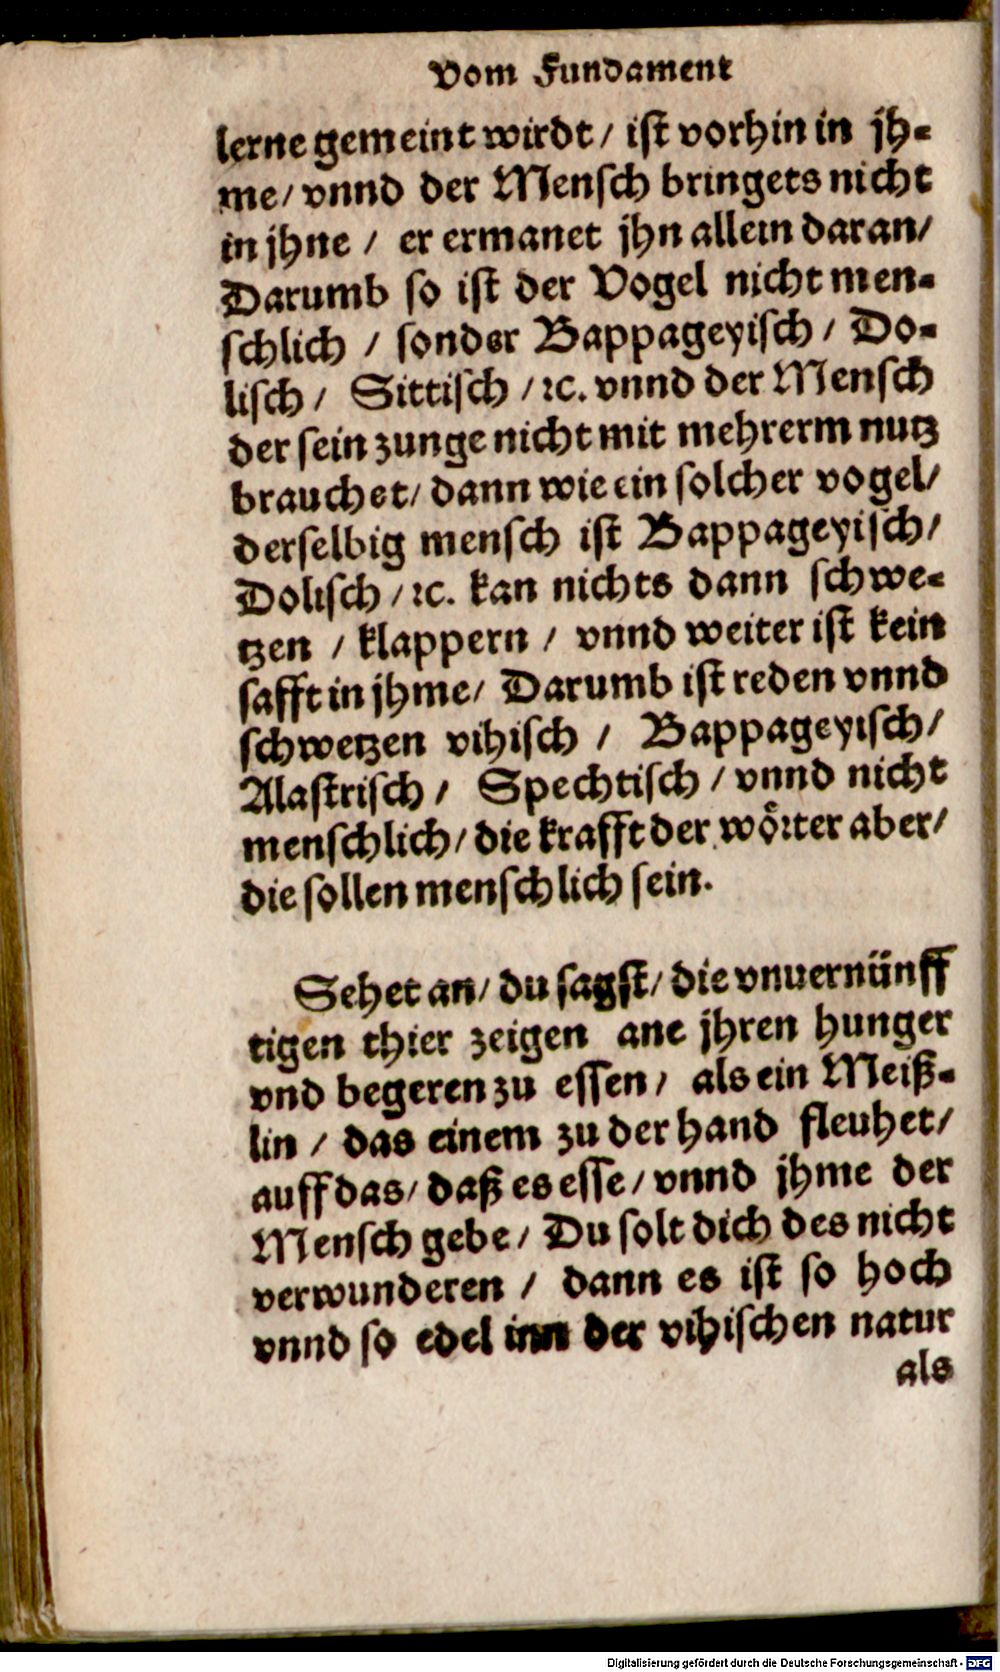 Vom Fundament
lerne gemeint wirdt / ist vorhin in jh-
me / vnnd der Mensch bringets nicht
in jhne / er ermanet jhn allein daran /
Darumb so ist der Vogel nicht men-
schlich / sonder Bappageyisch / Do-
lisch / Sittisch / ꝛc. vnnd der Mensch
der sein zunge nicht mit mehrerm nutz
brauchet / dann wie ein solcher vogel /
derselbig mensch ist Bappageyisch /
Dolisch / ꝛc. kan nichts dann schwe-
tzen / klappern / vnnd weiter ist kein
safft in jhme / Darumb ist reden vnnd
schwetzen vihisch / Bappageyisch /
Alastrisch / Spechtisch / vnnd nicht
menschlich / die krafft der wörter aber /
die sollen menschlich sein.
Sehet an / du sagst / die vnuernünff
tigen thier zeigen ane jhren hunger
vnd begeren zu essen / als ein Meiß-
lin / das einem zu der hand fleuhet /
auff das / daß es esse / vnnd jhme der
Mensch gebe / Du solt dich des nicht
verwunderen / dann es ist so hoch
vnnd so edel inn der vihischen natur
als
Digitalisierung gefördert durch die Deutsche Forschungsgemeinschaft - DFG